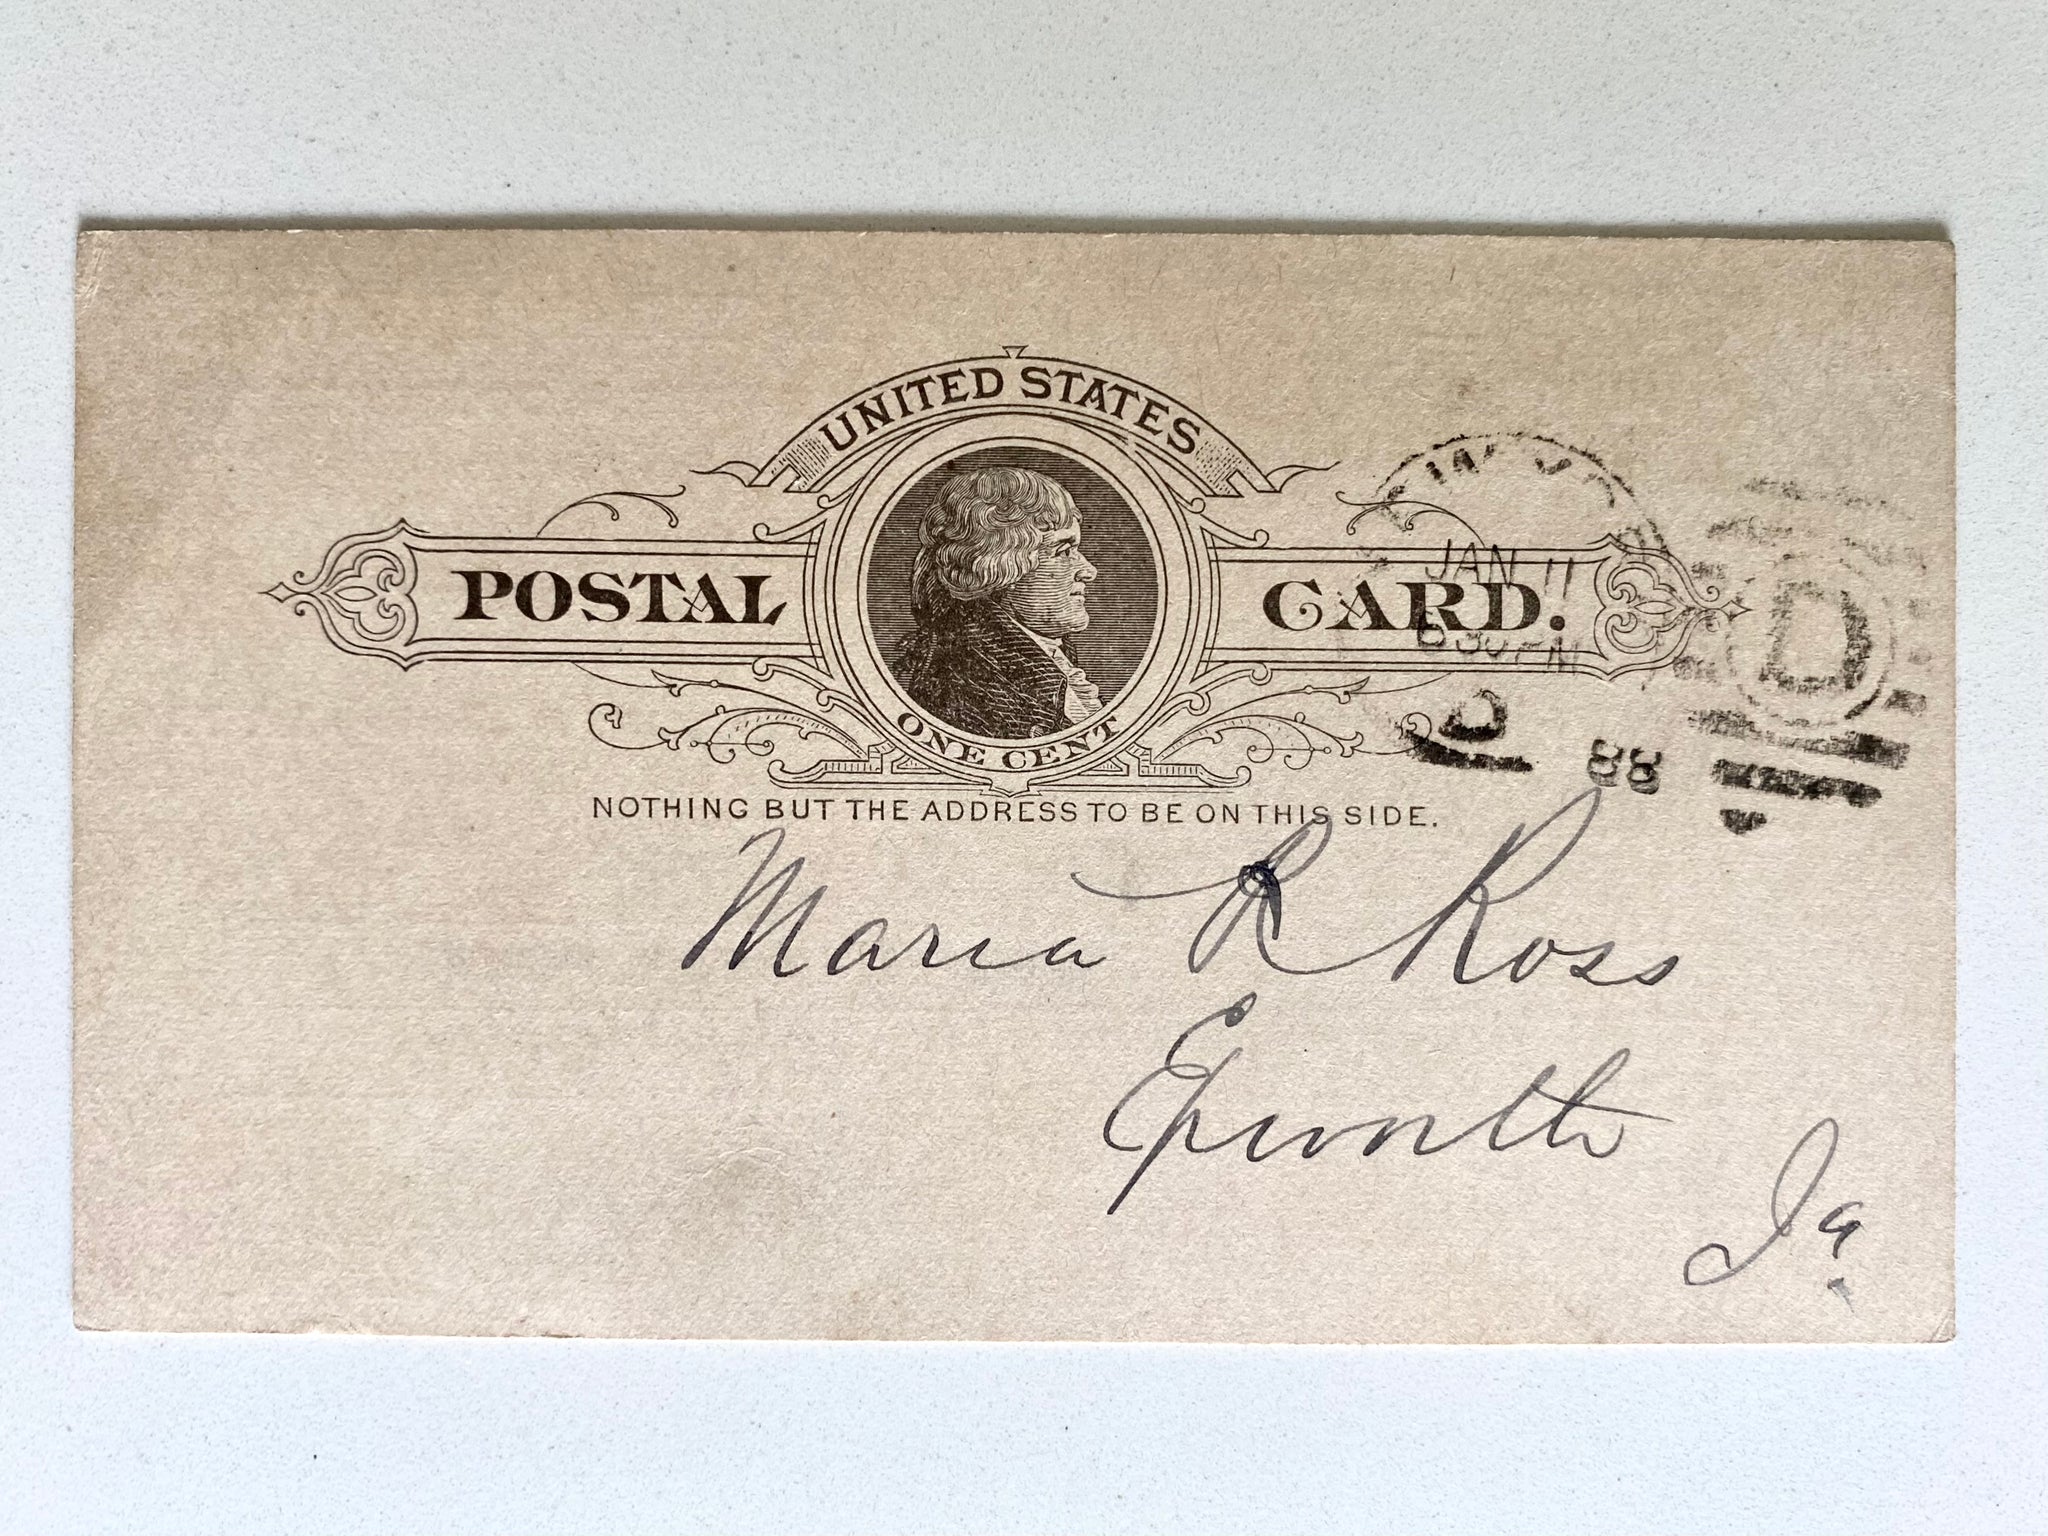 UNITED STATES
POSTAL CARD.
ONE CENT
NOTHING BUT THE ADDRESS TO BE ON THIS SIDE.
JAN 11
630 PM
88
Maria R Ross
Epworth
Ia.